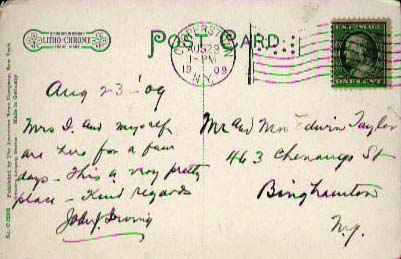 LITHO-CHROME
TRADE MARK
POST CARD.
COOPERSTOWN
AUG 23
1-PM
1909
N.Y.
ONE CENT
Aug 23-'09
Mrs I. and myself
are here for a few
days - This a very pretty
place - Kind regards
John J. Irving
Mr and Mrs Edwin Taylor
463 Chenango St
Binghamton
N.Y.
Published by The American News Company, New York
Made in Germany